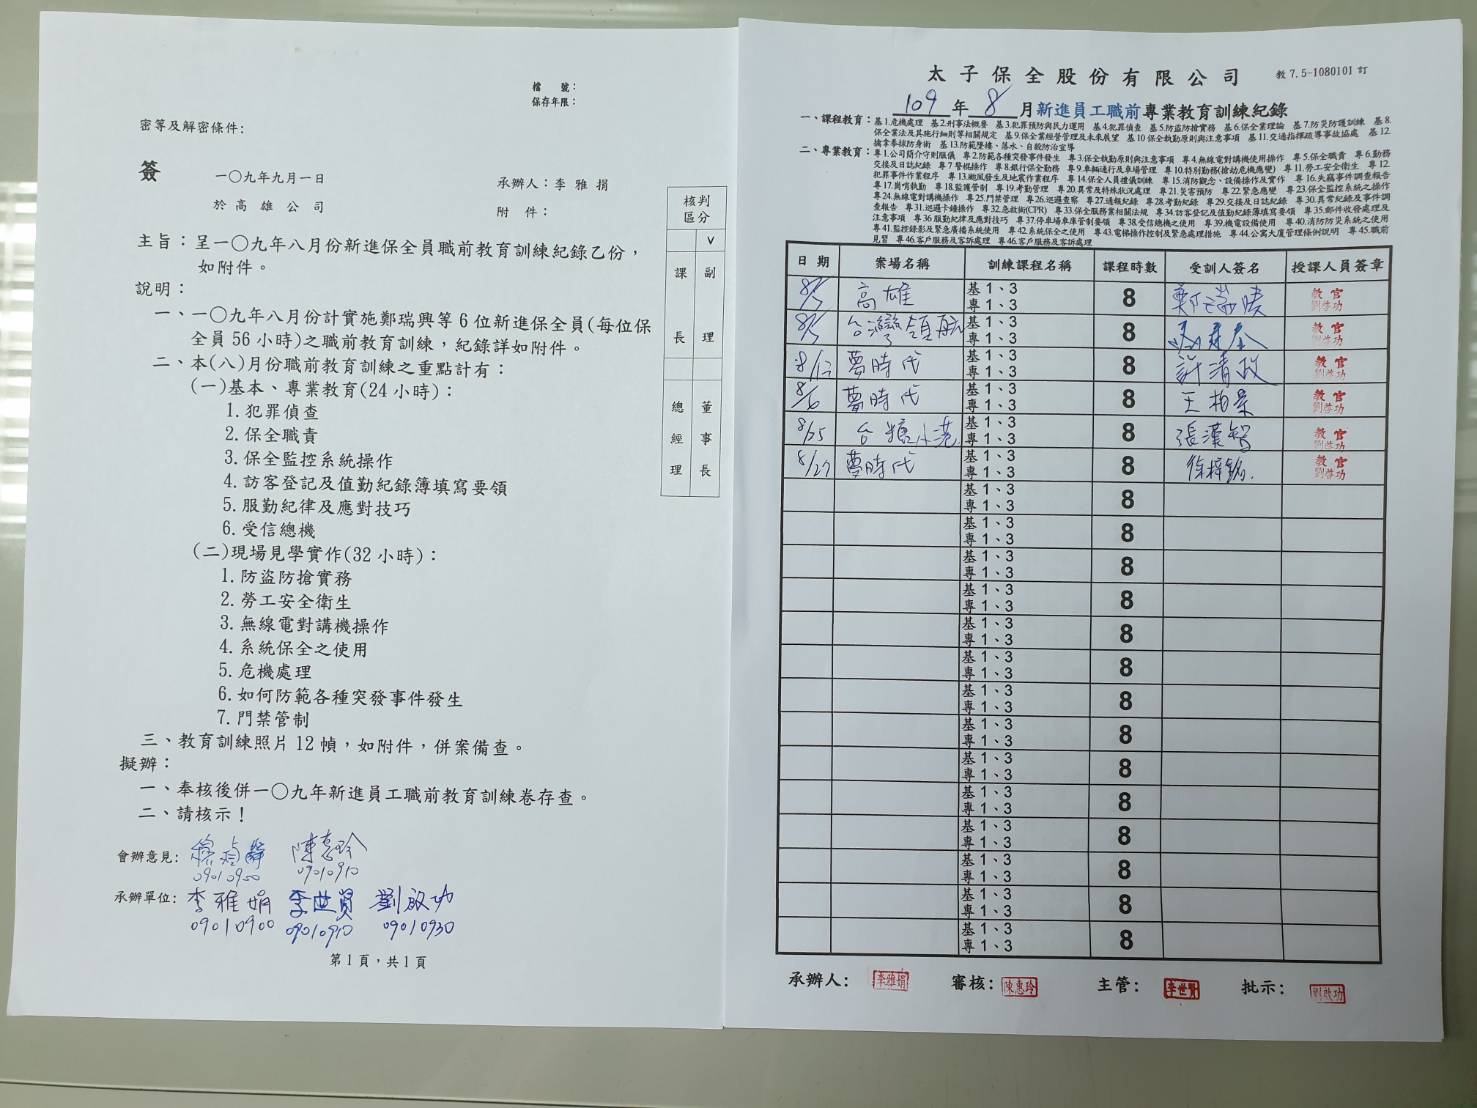 檔 號：
保存年限：
密等及解密條件：
簽
一〇九年九月一日
於高雄公司
承辦人：李雅捐
附 件：
核判
區分
v
課 副
長 理
總 董
經 事
理 長
主旨：呈一〇九年八月份新進保全員職前教育訓練紀錄乙份，
如附件。
說明：
一、一〇九年八月份計實施鄭瑞興等6位新進保全員(每位保
全員56小時)之職前教育訓練，紀錄詳如附件。
二、本(八)月份職前教育訓練之重點計有：
(一)基本、專業教育(24小時)：
1.犯罪偵查
2.保全職責
3.保全監控系統操作
4.訪客登記及值勤紀錄簿填寫要領
5.服勤紀律及應對技巧
6.受信總機
(二)現場見學實作(32小時)：
1.防盜防搶實務
2.勞工安全衛生
3.無線電對講機操作
4.系統保全之使用
5.危機處理
6.如何防範各種突發事件發生
7.門禁管制
三、教育訓練照片12幀，如附件，併案備查。
擬辦：
一、奉核後併一〇九年新進員工職前教育訓練卷存查。
二、請核示！
會辦意見： 陳惠玲
09010900 09010910
承辦單位：李雅娟 李世賢 劉啟功
09010900 09010910 09010930
第1頁，共1頁
太子保全股份有限公司 教7.5-1080101訂
109年8月新進員工職前專業教育訓練紀錄
一、課程教育：基1.危機處理 基2.刑事法概要 基3.犯罪預防與民力運用 基4.犯罪偵查 基5.防盜防搶實務 基6.保全業理論 基7.防災防護訓練 基8.
保全業法及其施行細則等相關規定 基9.保全業經營管理及未來展望 基10保全執勤原則與注意事項 基11.交通指揮疏導事故協處 基12.
擒拿拳撩防身術 基13.防範墜樓、落水、自殺防治宣導
二、專業教育：專1.公司簡介守則服儀 專2.防範各種突發事件發生 專3.保全執勤原則與注意事項 專4.無線電對講機使用操作 專5.保全職責 專6.勤務
交接及日誌紀錄 專7.警棍操作 專8.銀行保全勤務 專9.車輛通行及車場管理 專10.特別勤務(搶劫危機應變) 專11.勞工安全衛生 專12.
犯罪事件作業程序 專13.颱風發生及地震作業程序 專14.保全人員禮儀訓練 專15.消防觀念、設備操作及實作 專16.失竊事件調查報告
專17.崗哨執勤 專18.監護管制 專19.考勤管理 專20.異常及特殊狀況處理 專21.災害預防 專22.緊急應變 專23.保全監控系統之操作
專24.無線電對講機操作 專25.門禁管理 專26.巡邏查察 專27.通報紀錄 專28.考勤紀錄 專29.交接及日誌紀錄 專30.異常紀錄及事件調
查報告 專31.巡邏卡鐘操作 專32.急救術(CPR) 專33.保全服務業相關法規 專34.訪客登記及值勤紀錄簿填寫要領 專35.郵件收發處理及
注意事項 專36服勤紀律及應對技巧 專37.停車場車庫管制要領 專38.受信總機之使用 專39.機電設備使用 專40.消防防災系統之使用
專41.監控錄影及緊急廣播系統使用 專42.系統保全之使用 專43.電梯操作控制及緊急處理措施 專44.公寓大廈管理條例說明 專45.職前
見習 專46.客戶服務及客訴處理 專46.客戶服務及客訴處理
日期 案場名稱 訓練課程名稱 課程時數 受訓人簽名 授課人員簽章
8/3 高雄 基1、3 專1、3 8 鄭瑞 教官
8/5 台灣領航 基1、3 專1、3 8 教官
8/12 夢時代 基1、3 專1、3 8 許清 教官
8/6 夢時代 基1、3 專1、3 8 王柏 教官
8/25 台糖小港 基1、3 專1、3 8 張漢智 教官
8/27 夢時代 基1、3 專1、3 8 徐梓 教官
基1、3 專1、3 8
基1、3 專1、3 8
基1、3 專1、3 8
基1、3 專1、3 8
基1、3 專1、3 8
基1、3 專1、3 8
基1、3 專1、3 8
基1、3 專1、3 8
基1、3 專1、3 8
基1、3 專1、3 8
基1、3 專1、3 8
基1、3 專1、3 8
基1、3 專1、3 8
基1、3 專1、3 8
承辦人：李雅娟 審核：陳惠玲 主管：李世賢 批示：劉啟功